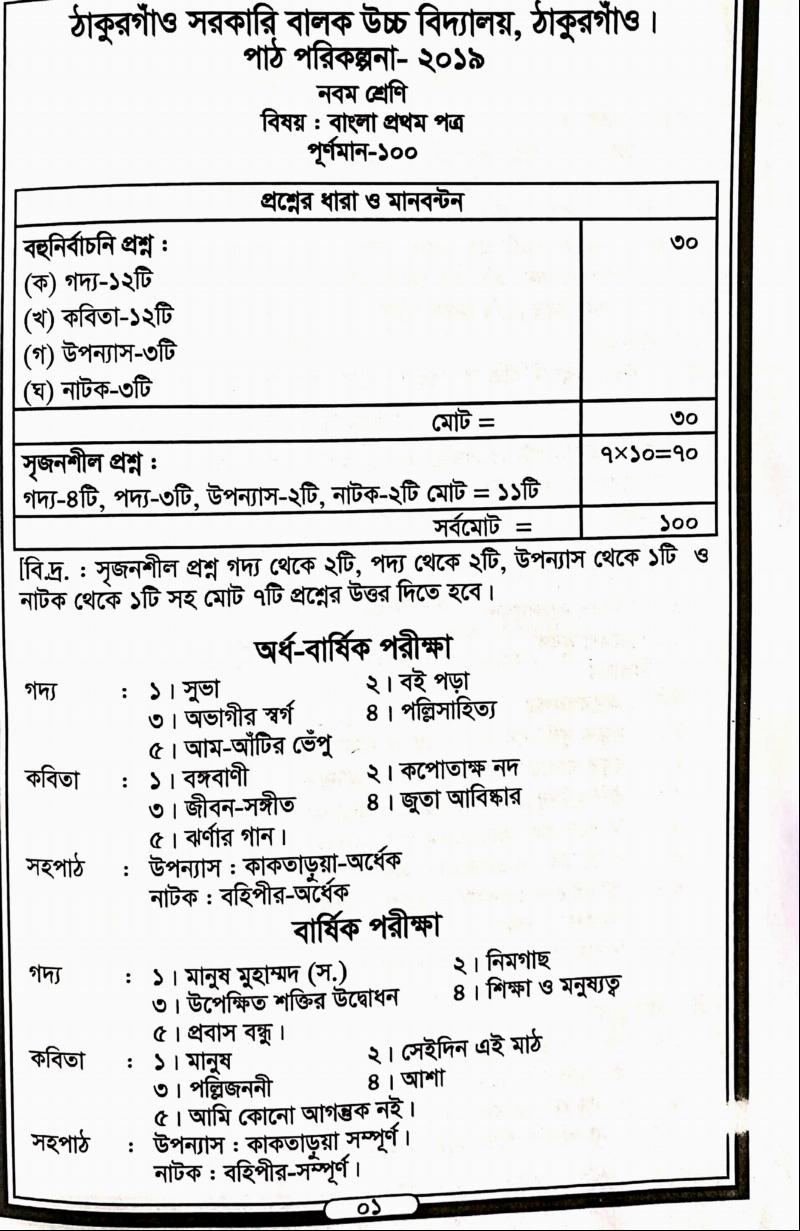 ঠাকুরগাঁও সরকারি বালক উচ্চ বিদ্যালয়, ঠাকুরগাঁও।
পাঠ পরিকল্পনা- ২০১৯
নবম শ্রেণি
বিষয় : বাংলা প্রথম পত্র
পূর্ণমান-১০০
প্রশ্নের ধারা ও মানবন্টন
বহুনির্বাচনি প্রশ্ন : ৩০
(ক) গদ্য-১২টি
(খ) কবিতা-১২টি
(গ) উপন্যাস-৩টি
(ঘ) নাটক-৩টি
মোট = ৩০
সৃজনশীল প্রশ্ন : ৭×১০=৭০
গদ্য-৪টি, পদ্য-৩টি, উপন্যাস-২টি, নাটক-২টি মোট = ১১টি
সর্বমোট = ১০০
[বি.দ্র. : সৃজনশীল প্রশ্ন গদ্য থেকে ২টি, পদ্য থেকে ২টি, উপন্যাস থেকে ১টি ও
নাটক থেকে ১টি সহ মোট ৭টি প্রশ্নের উত্তর দিতে হবে।
অর্ধ-বার্ষিক পরীক্ষা
গদ্য : ১। সুভা ২। বই পড়া
৩। অভাগীর স্বর্গ ৪। পল্লিসাহিত্য
৫। আম-আঁটির ভেঁপু
কবিতা : ১। বঙ্গবাণী ২। কপোতাক্ষ নদ
৩। জীবন-সঙ্গীত ৪। জুতা আবিষ্কার
৫। ঝর্ণার গান।
সহপাঠ : উপন্যাস : কাকতাড়ুয়া-অর্ধেক
নাটক : বহিপীর-অর্ধেক
বার্ষিক পরীক্ষা
গদ্য : ১। মানুষ মুহাম্মদ (স.) ২। নিমগাছ
৩। উপেক্ষিত শক্তির উদ্বোধন ৪। শিক্ষা ও মনুষ্যত্ব
৫। প্রবাস বন্ধু।
কবিতা : ১। মানুষ ২। সেইদিন এই মাঠ
৩। পল্লিজননী ৪। আশা
৫। আমি কোনো আগন্তুক নই।
সহপাঠ : উপন্যাস : কাকতাড়ুয়া সম্পূর্ণ।
নাটক : বহিপীর-সম্পূর্ণ।
০১